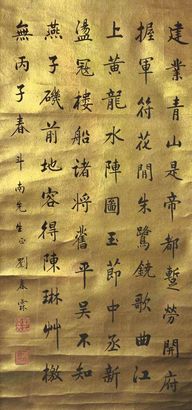 建業青山是帝都暫勞開府
握軍符花間朱鷺鐃歌曲江
上黃龍水陣圖玉節中丞新
盪寇樓船諸將舊平吳不知
燕子磯前地容得陳琳艸檄
無丙子春 斗南先生正 劉春霖